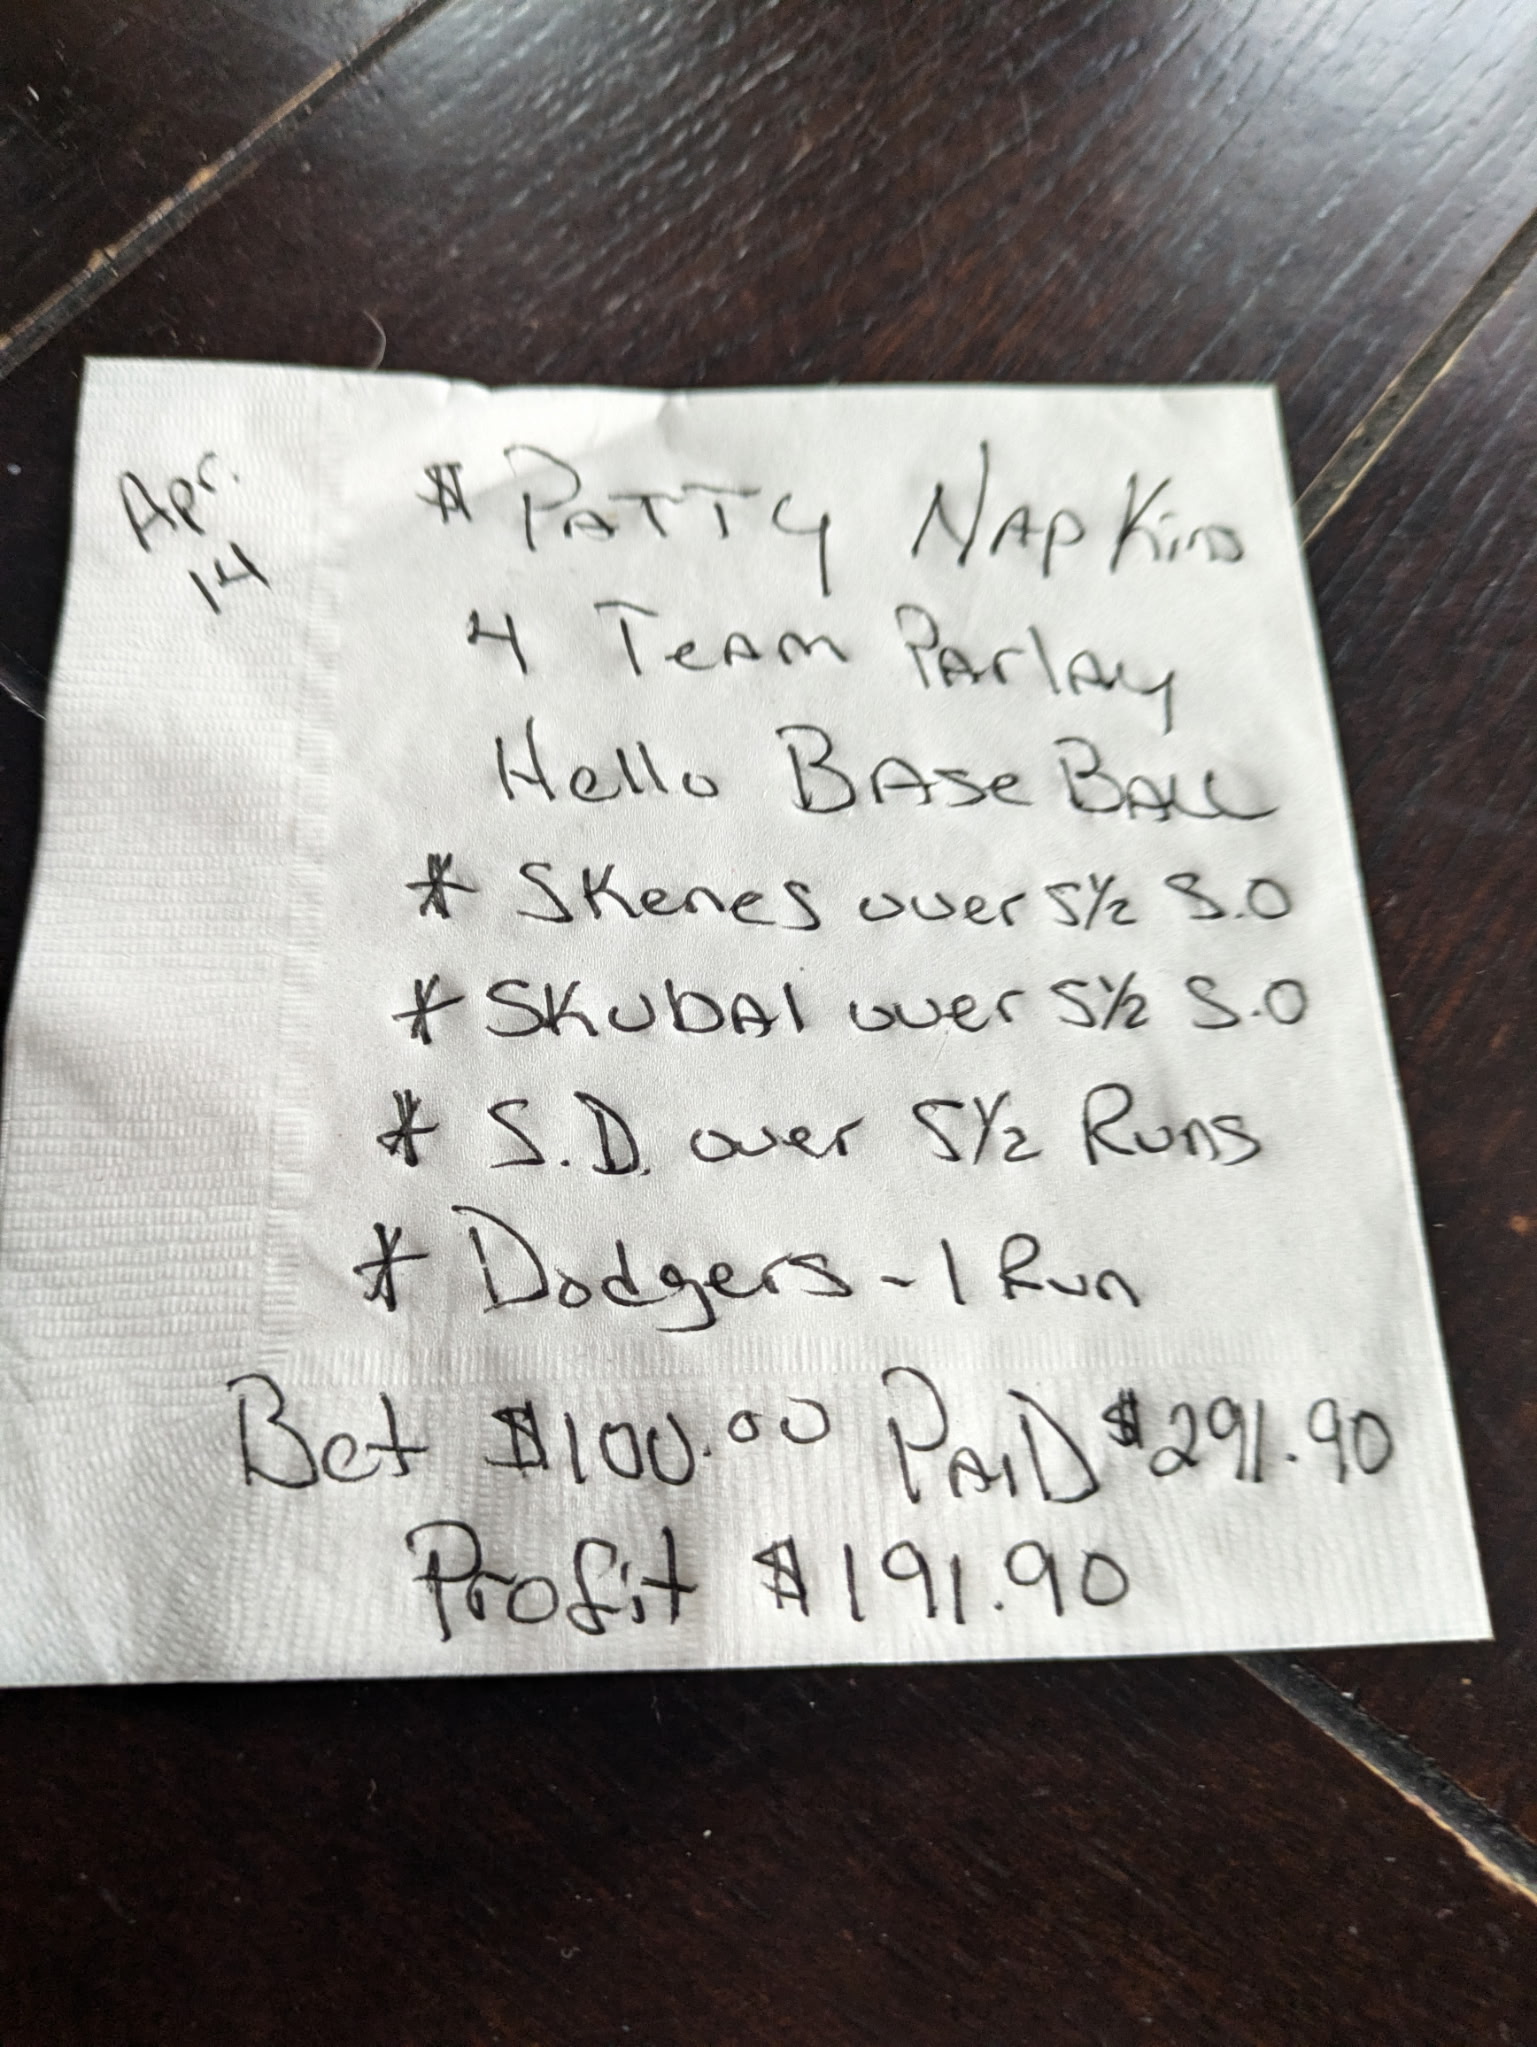 Apr.
14
$ PATTY NAPKins
4 TeAm PArlAy
Hello BAse BALL
* SKenes over 5½ S.O
* SKubAl over 5½ S.O
* S.D. over 5½ Runs
* Dodgers - 1 Run
Bet $100.00 PAiD $291.90
Profit $191.90